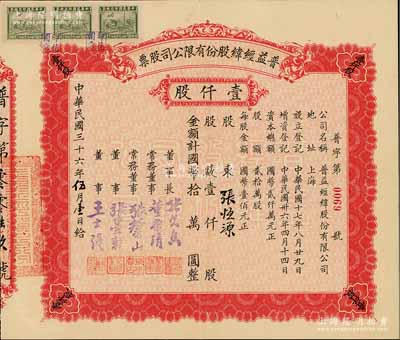 普益經緯股份有限公司股票
壹仟股
普字第 0069 號
公司名稱 普益經緯股份有限公司
地址 上海
設立登記 中華民國十七年八月廿九日
增資登記 中華民國卅六年四月十四日
資本總額 國幣貳仟萬元正
股額 貳拾萬股
每股金額 國幣壹佰元正
股東 張恆源
股數 壹仟股
金額計國幣拾萬圓整
董事長
常務董事
常務董事
董事
董事
中華民國三十六年伍月壹日給
普字第零零陸玖號